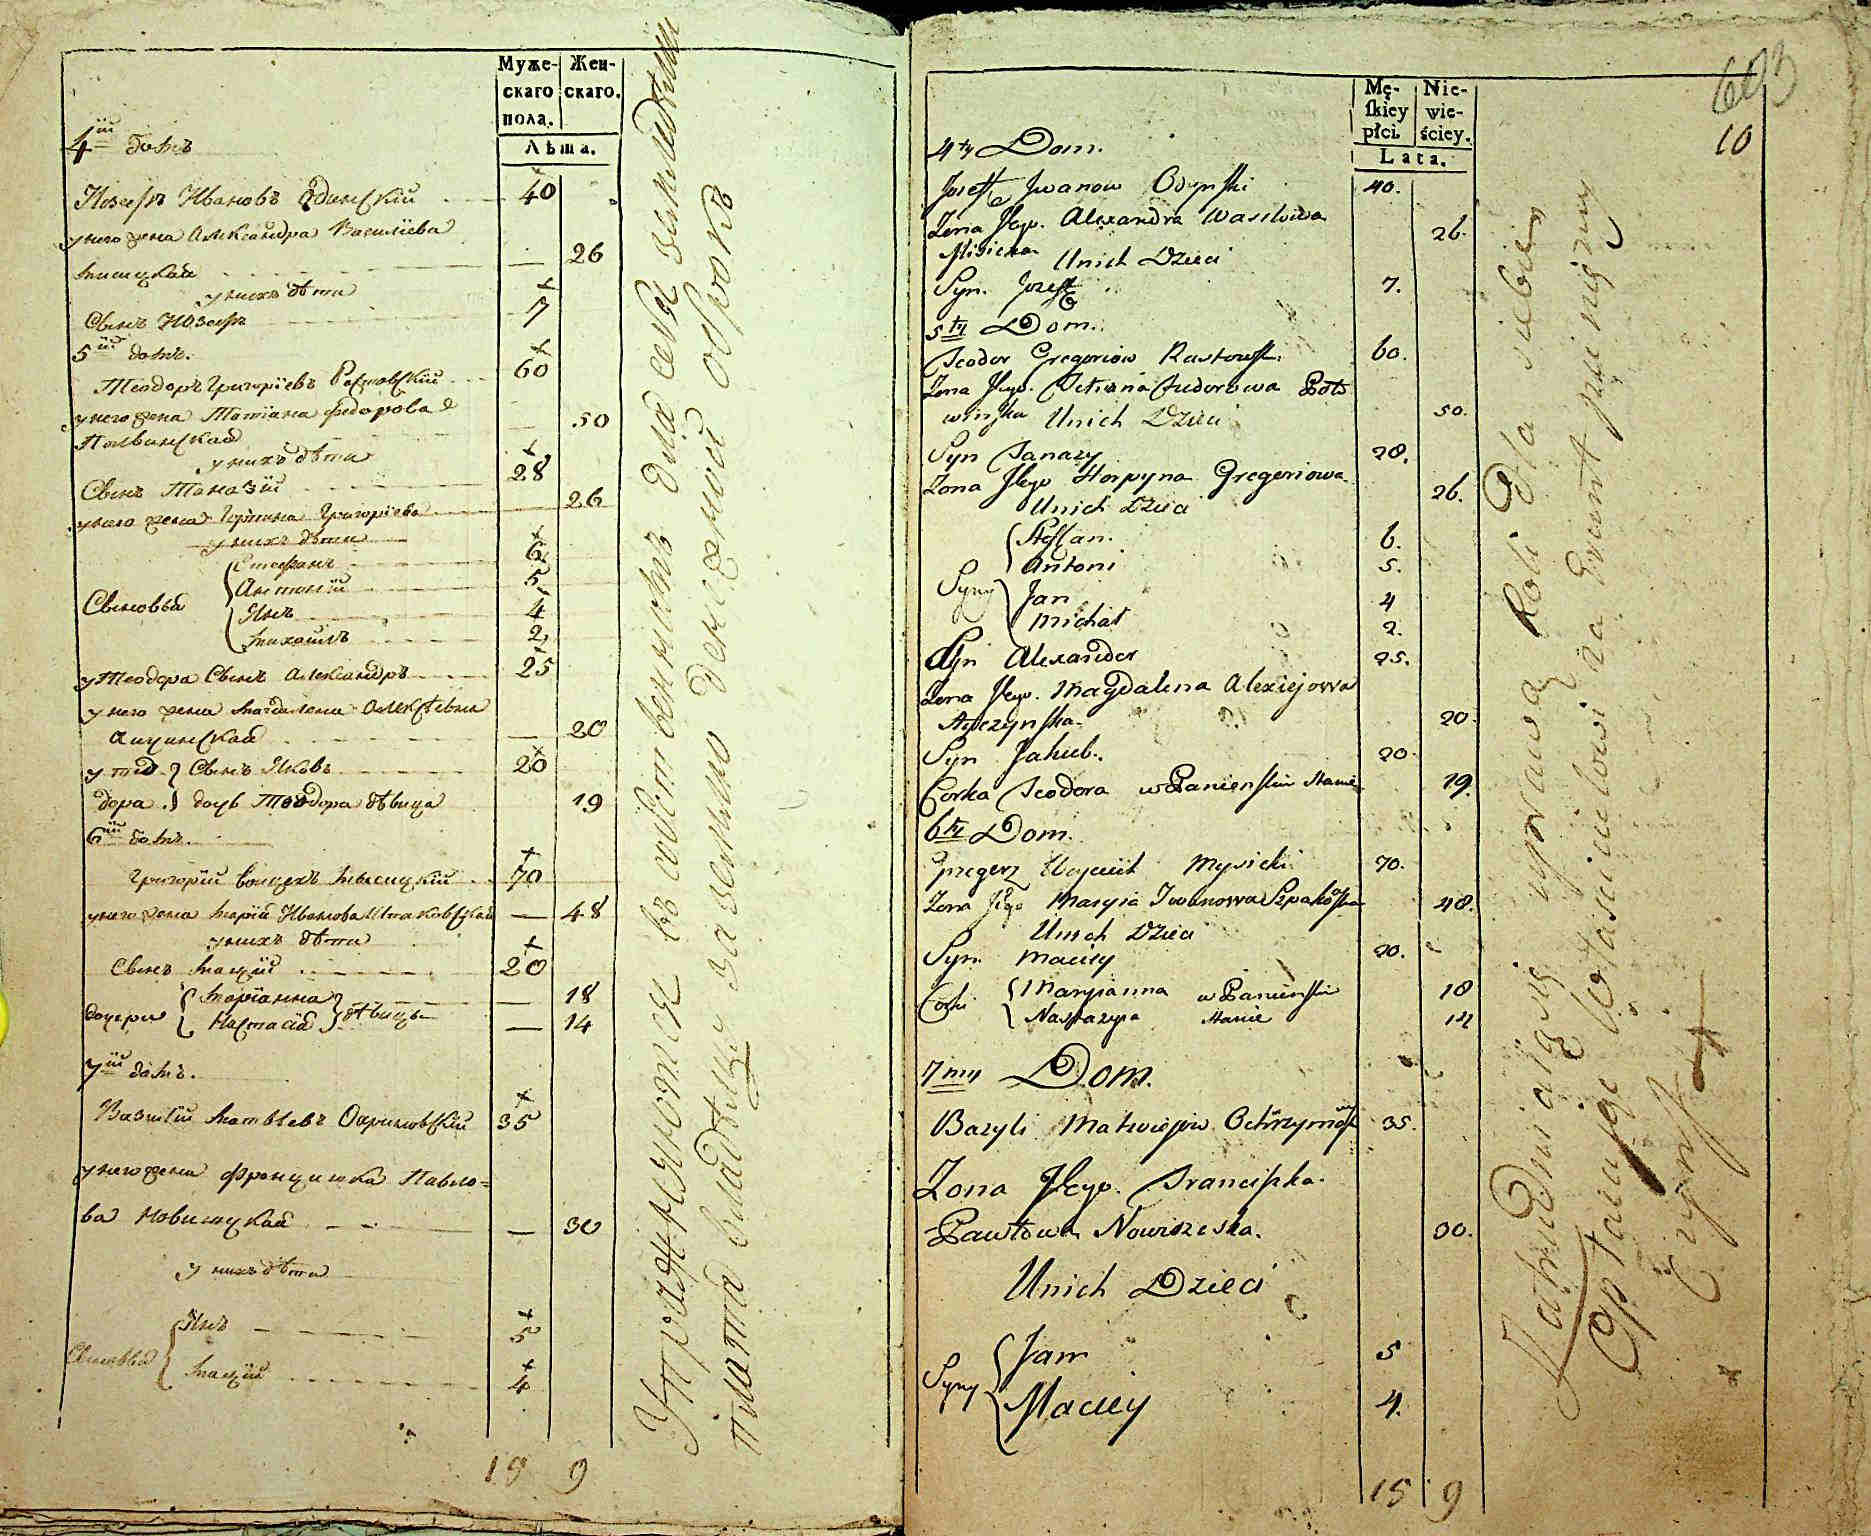 Муже-
скаго
пола.
Жен-
скаго.
Лѣта.
4ій домъ
Іозефъ Ивановъ Одинскій 40
у него жена Александра Василіева
Мисицкая — 26
у нихъ дѣти
Сынъ Іозефъ 7
5ій домъ.
Теодоръ Григоріевъ Растовскій 60
у него жена Татіана Федорова
50
у нихъ дѣти
Сынъ Таназій 28
у него жена Горпина Григоріева 26
у нихъ дѣти
Сыновья
Стефанъ 6
Антоній 5
Янъ 4
Михаилъ 2
у Теодора Сынъ Александръ 25
у него жена Магдалена Алексѣевна
— 20
у Тео- Сынъ Яковъ 20
дора дочь Теодора дѣвица 19
6ій домъ.
Григорій Войцехъ Мысицкій 70
у него жена Марія Иванова Шпаковская — 48
у нихъ дѣти
Сынъ Мацѣй 20
дочери Маріанна — 18
Настасія дѣвицы — 14
7ій домъ.
Василій Матвѣевъ Охримовскій 35
у него жена Францишка Павло=
ва Новицкая — 30
у нихъ дѣти
Сыновья
Янъ 5
Мацѣй 4
15 9
Упражняются въ собственномъ для себя земледѣліи
платя владѣльцу за землю денежной оброкъ
603
10
Mę-
skiey
płci
Nie-
wie-
ściey.
Lata.
4ty Dom.
Jozeff Jwanow Odynski 40.
Zona Jego. Alexandra Wasilowa 26.
Misicka Unich Dzieci
Syn. Jozeff 7.
5ty Dom.
Teodor Gregoriow Rastowski. 60.
Zona Jego. Tetiana Fiudorowa Poto
winska Unich Dzieci 50.
Syn Tanazy 28.
Zona Jego Horpyna Gregoriowa 26.
Unich Dzieci
Syny
Steffan. 6.
Antoni 5.
Jan 4
Michał 2.
Syn Alexander 25.
Zona Jego. Magdalena Alexiejowa
20.
Syn Jakub. 20
Corka Teodora w Panienskim Stanie 19.
6ty Dom.
Grzegorz Woyciech Mysicki 70.
Zona Jego Maryia Iwanowa Szpakowska 48.
Unich Dzieci
Syn Maciey 20.
Corki Maryianna w Panienskim 18
Nastazyia Stanie 14
7my Dom.
Bazyli Matwiejow Ochrzymowski 35.
Zona Jego. Franciszka.
Pawłowa Nowicka. 30.
Unich Dzieci
Syny
Jan 5
Maciey 4.
15 9
Zatrudniaią się uprawą Roli Dla siebie
Opłaiąc Włascicielowi za Grunt pieniężny
Czynsz